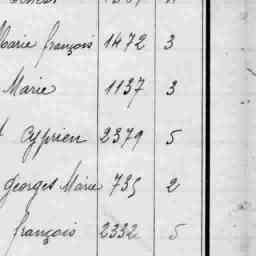 Marie françois 1472 3
Marie 1137 3
Cyprien 2379 5
Georges Marie 735 2
françois 2332 5